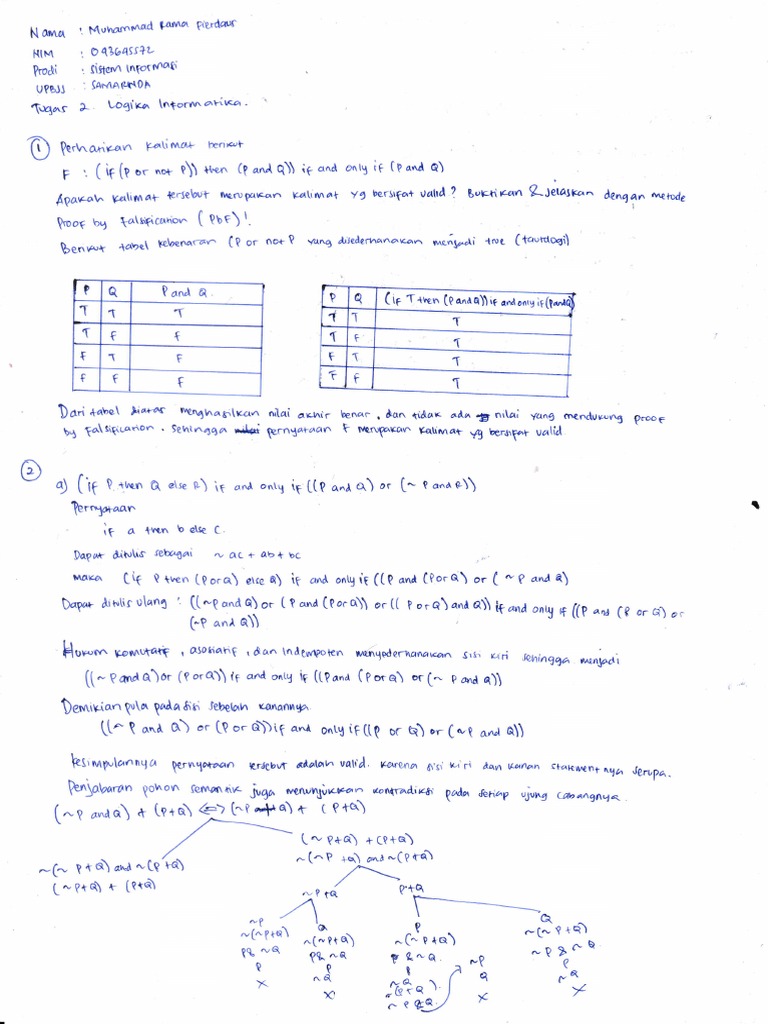 Nama : Muhammad Rama Fierdaus
NIM : 043645572
Prodi : Sistem Informasi
UPBJJ : SAMARINDA
Tugas 2. Logika Informatika.
① Perhatikan kalimat berikut
F : (if (P or not P)) then (P and Q)) if and only if (P and Q)
Apakah kalimat tersebut merupakan kalimat yg bersifat valid? Buktikan & Jelaskan dengan metode
Proof by Falsification (PbF)!
Berikut tabel kebenaran (P or not P yang disederhanakan menjadi true (tautologi)
P Q P and Q.
T T T
T F F
F T F
F F F
P Q (if T then (P and Q)) if and only if (P and Q)
T T T
T F T
F T T
F F T
Dari tabel diatas menghasilkan nilai akhir benar, dan tidak ada nilai yang mendukung proof
by falsification. Sehingga pernyataan F merupakan kalimat yg bersifat valid
②
a) (if P then Q else R) if and only if ((P and Q) or (~ P and R))
Pernyataan
if a then b else c.
Dapat ditulis sebagai ~ ac + ab + bc
maka (if P then (P or Q) else Q) if and only if ((P and (P or Q) or (~ P and Q)
Dapat ditulis ulang : ((~P and Q) or (P and (P or Q)) or ((P or Q) and Q)) if and only if ((P and (P or Q) or
(~P and Q))
Hukum komutatif, asosiatif, dan Indempoten menyederhanakan sisi kiri sehingga menjadi
((~ P and Q) or (P or Q)) if and only if ((P and (P or Q) or (~ P and Q))
Demikian pula pada sisi sebelah kanannya
((~ P and Q) or (P or Q)) if and only if ((P or Q) or (~P and Q))
Kesimpulannya pernyataan tersebut adalah valid. karena sisi kiri dan kanan statementnya serupa.
Penjabaran pohon semantik juga menunjukkan kontradiksi pada setiap ujung cabangnya.
(~ P and Q) + (P+Q) <=> (~ P + Q) + (P+Q)
(~ P+Q) + (P+Q)
~(~ P +Q) and ~(P+Q)
~(~ P+Q) and ~(P+Q)
(~P+Q) + (P+Q)
~P+Q P+Q
~P Q P Q
~(~P+Q) ~(~P+Q) ~(~P+Q) ~(~P+Q)
P & ~Q P & ~Q P & ~Q ~P & ~Q.
P P P P
X ~Q ~Q ~Q
X ~(P+Q). X
~ P & Q.
~P
Q
X